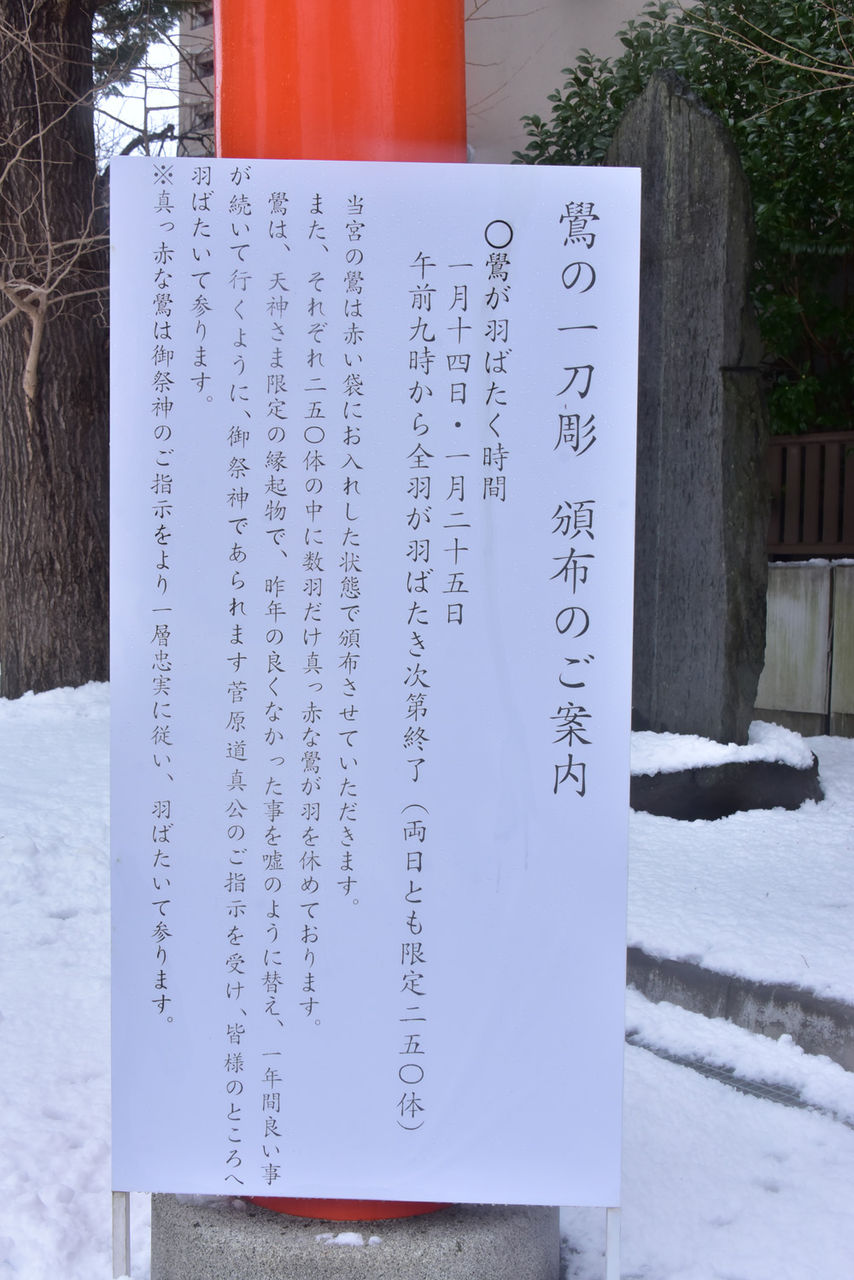 鷽の一刀彫　頒布のご案内
〇鷽が羽ばたく時間
一月十四日・一月二十五日
午前九時から全羽が羽ばたき次第終了（両日とも限定二五〇体）
当宮の鷽は赤い袋にお入れした状態で頒布させていただきます。
また、それぞれ二五〇体の中に数羽だけ真っ赤な鷽が羽を休めております。
鷽は、天神さま限定の縁起物で、昨年の良くなかった事を嘘のように替え、一年間良い事
が続いて行くように、御祭神であられます菅原道真公のご指示を受け、皆様のところへ
羽ばたいて参ります。
※真っ赤な鷽は御祭神のご指示をより一層忠実に従い、羽ばたいて参ります。